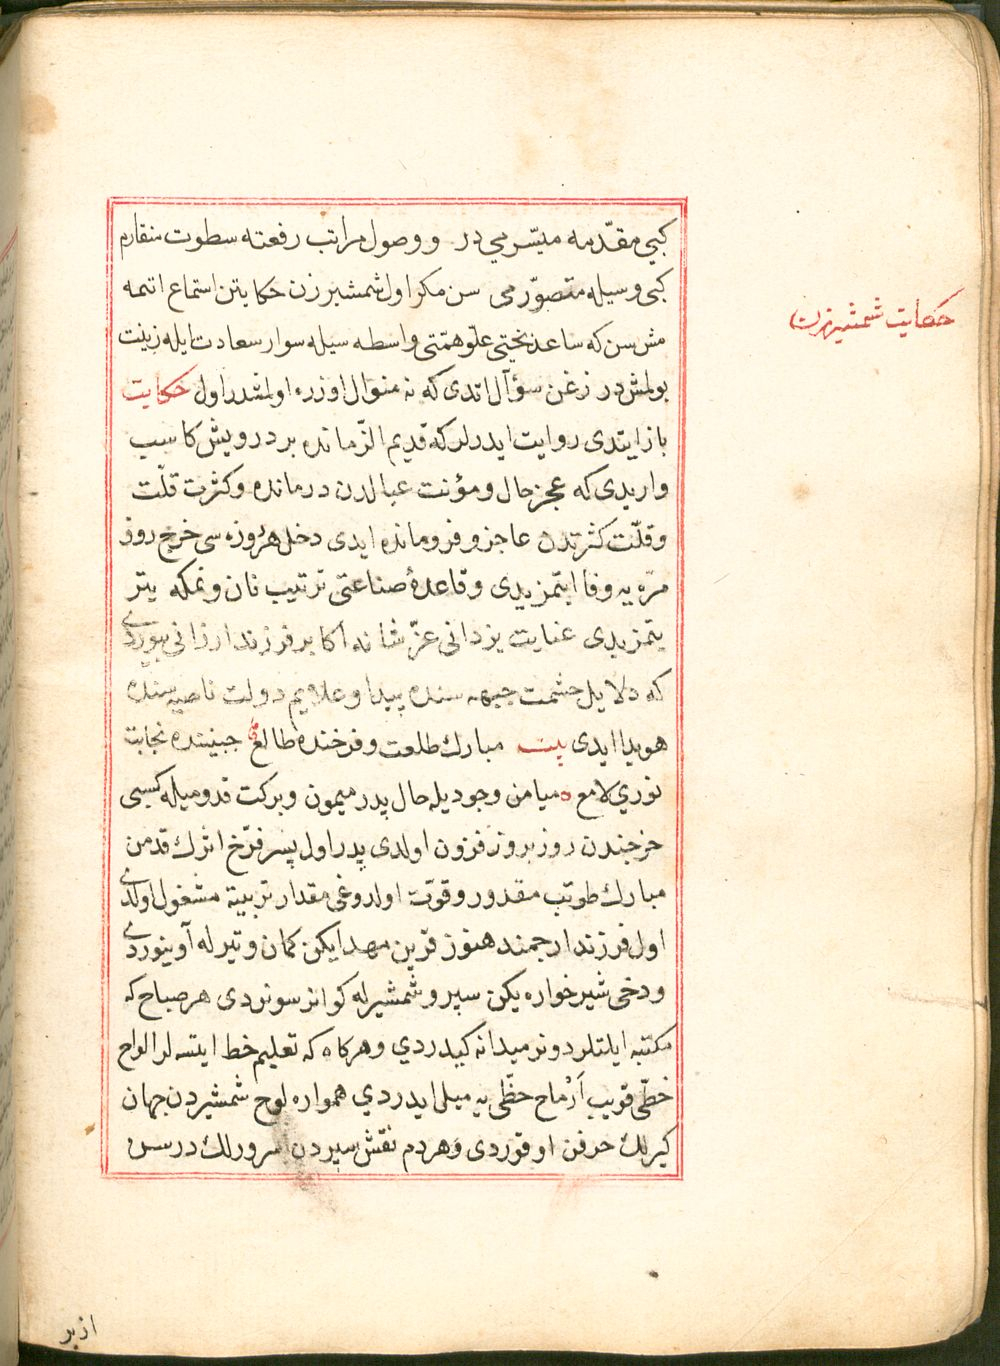 كبي مقدّمه ميسّر مي در و وصول مراتب رفعته سطوت منقارم
كبي وسيله متصوّر مي سن مكر اول شمشيرزن حكايتن استماع اتمه
حكايت شمشيرزن
مش سن كه ساعد بختي علوّ همّتي واسطه سيله سوار سعادت ايله زينت
بولمش در زغن سؤال اتدى كه نه منوال اوزره اولمشدر اول حكايت
باز ايتدى روايت ايدرلر كه قديم الزّمانده بر درويش كاسب
وار يدى كه عجز حال و مؤنت عيالدن درمانده و كثرت قلّت
و قلّت كثرتدن عاجز و فرومانده ايدى دخل هر روزه سى خرج روز
مرّه يه وفا ايتمزيدى و قاعدۀ صناعتى ترتيب نان و نمكه يتر
يتمزيدى عنايت يزدانى عزّ شانه اكا بر فرزند ارزانى بيوردى
كه دلايل حشمت جبهه سنده پيدا و علايم دولت ناصيه سنده
هويدا ايدى بيت مبارك طلعت و فرخنده طالع جبيننده نجابت
نوري لامع ميامن وجوديله حال پدر ميمون و بركت قدوميله كسبى
خرجندن روز بروز فزون اولدى پدر اول پسر فرّخ اثرك قدمن
مبارك طوتب مقدور و قوّت اولدوغى مقدار تربيته مشغول اولدى
اول فرزند ارجمند هنوز قرين مهد ايكن كمان و تير له آوينوردى
و دخى شيرخواره يكن سپر و شمشيرله كوانر سونردى هر صباح كه
مكتبه ايلتلر دونر ميدانه كيدردي و هركاه كه تعليم خط ايتسه لر الواح
خطّى قويب اَرْماح حظّى يه ميل ايدردي همواره لوح شمشيردن جهان
كيرلك حرفن اوقوردى و هر دم نقش سپردن سرورلك درسن
از بر